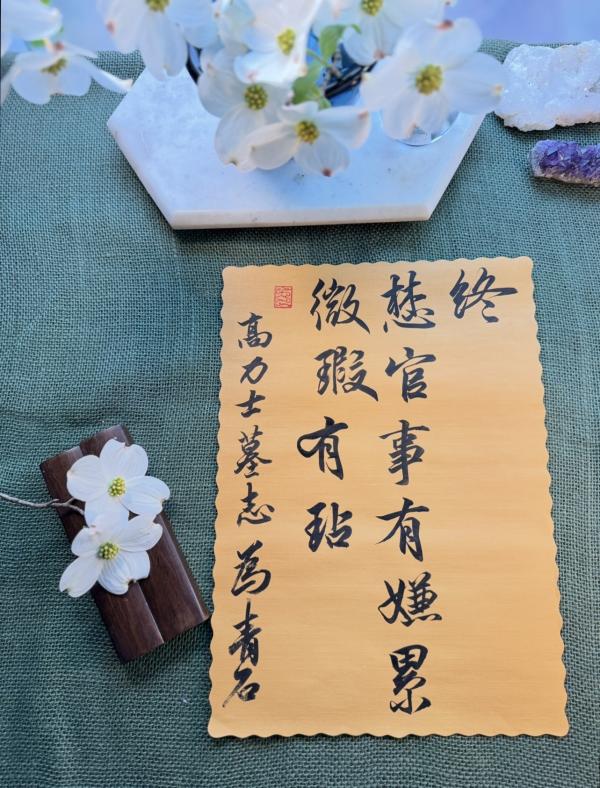 終
愆官事有嫌累
微瑕有玷
高力士墓志 為青石